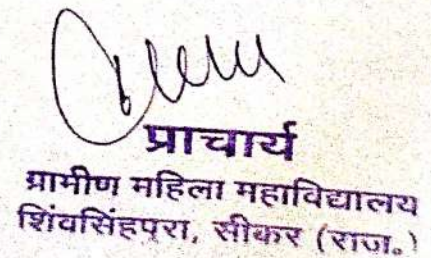 प्राचार्य
ग्रामीण महिला महाविद्यालय
शिवसिंहपुरा, सीकर (राज.)